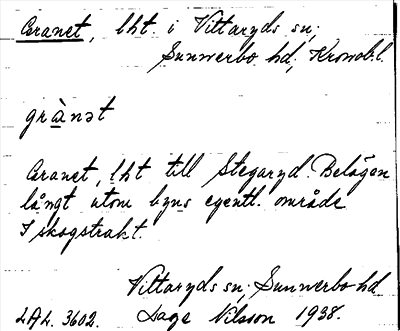 Granet, lht. i Vittaryds sn;
Sunnerbo hd, Kronob.l.
grànət
Granet, lht till Stegaryd. Belägen
långt utom byns egentl. område
I skogstrakt.
Vittaryds sn; Sunnerbo hd
LAL. 3602. Sage Nilsson 1938.